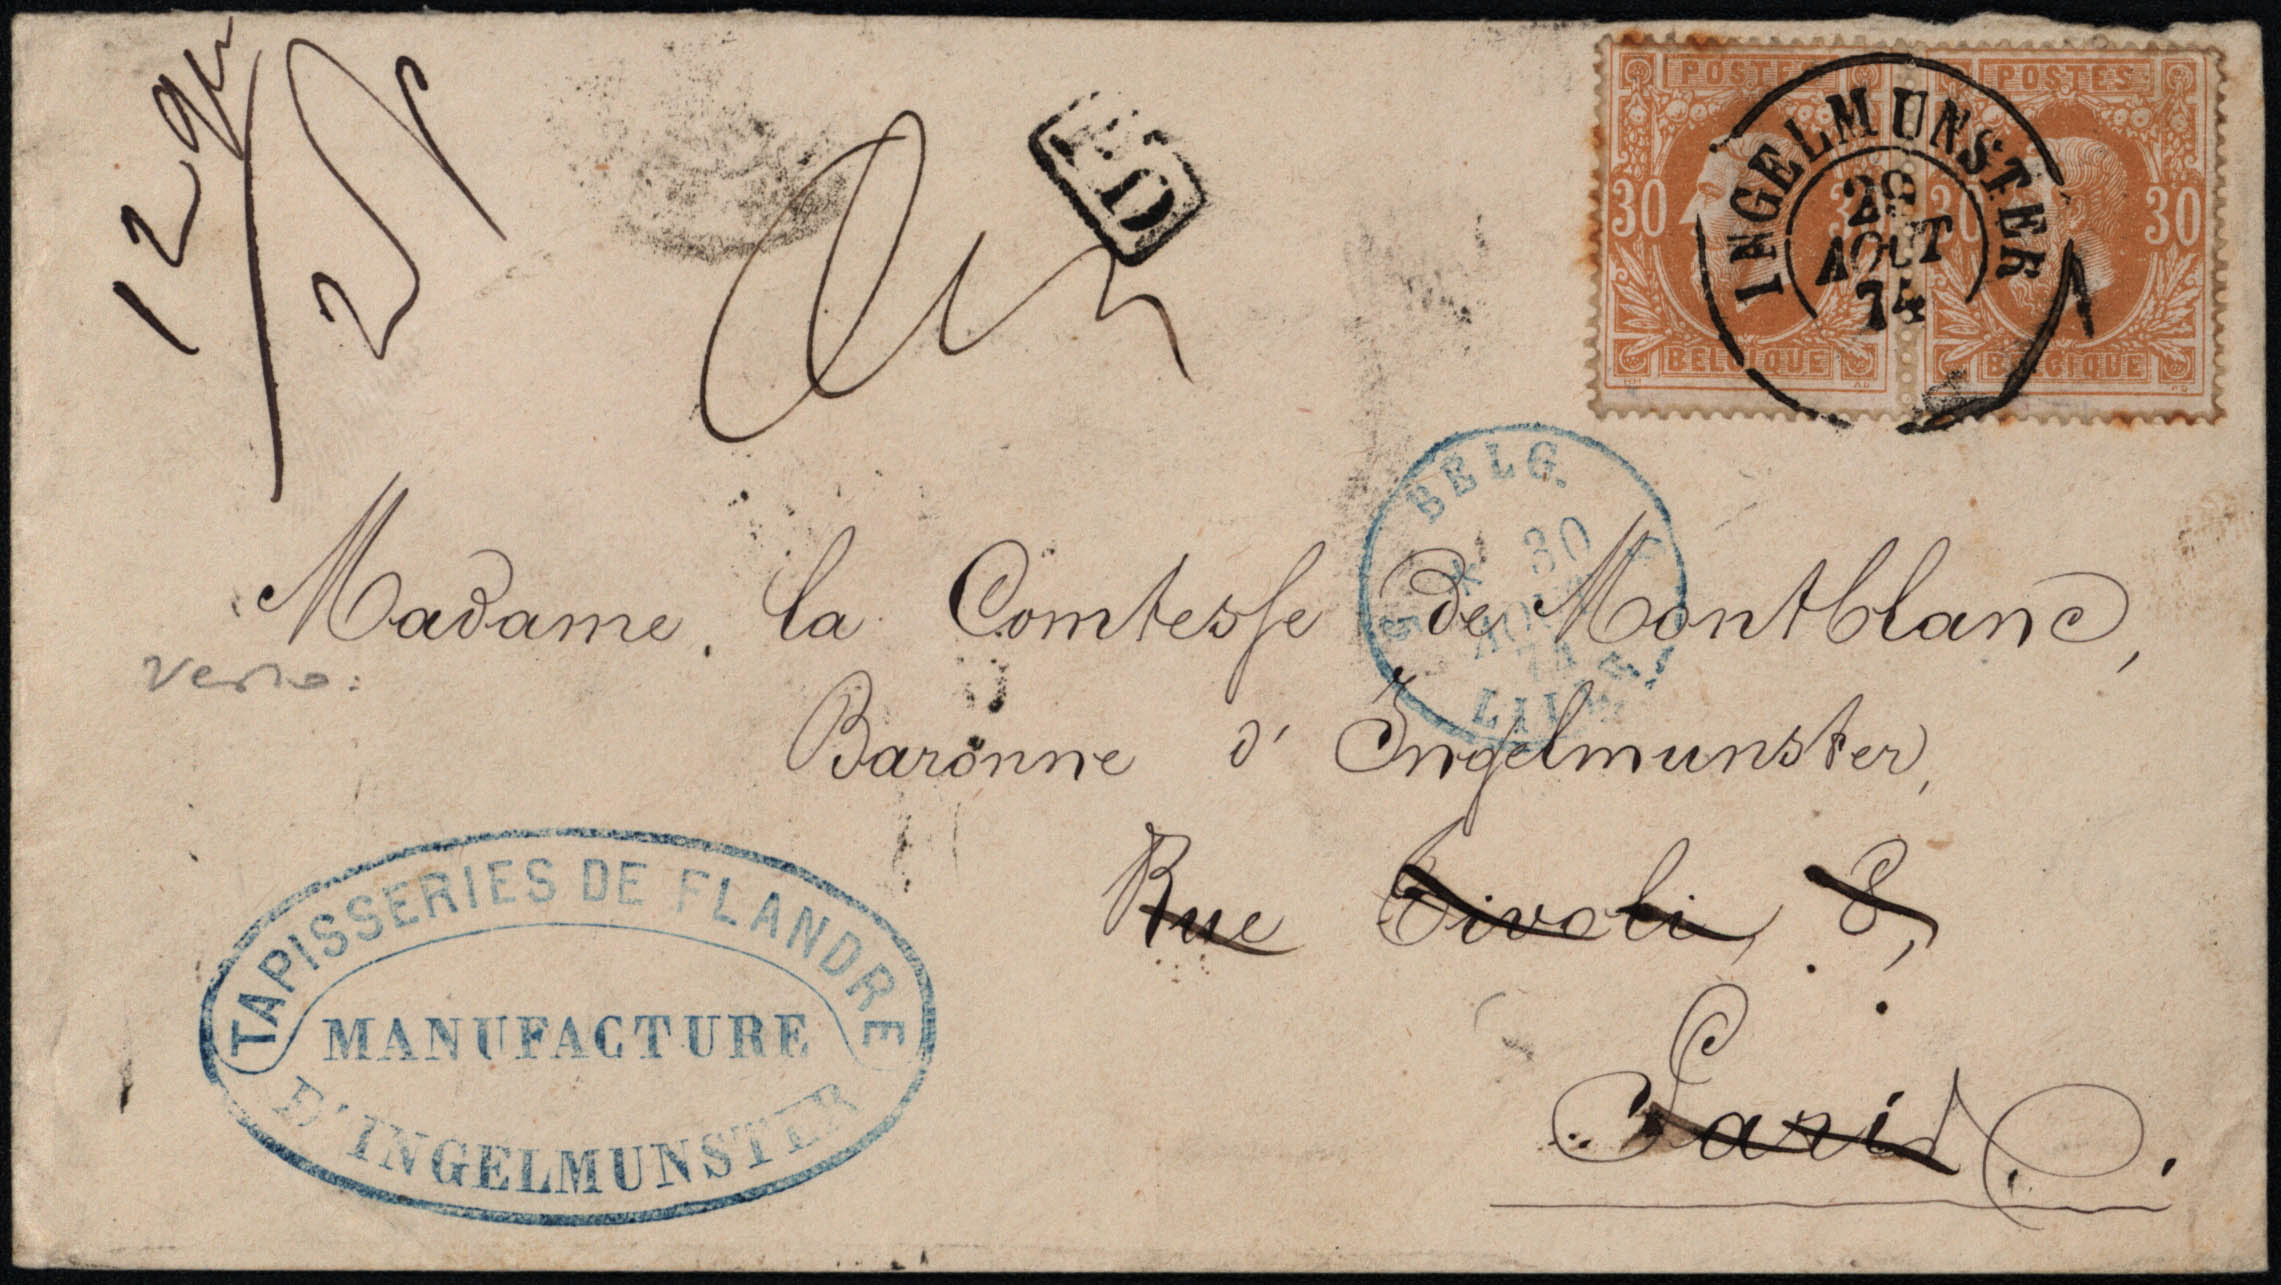 POSTES
POSTES
30 30
30 30
BELGIQUE
BELGIQUE
INGELMUNSTER
29
AOUT
74
PD
BELG.
30
AOUT
74
LILLE
Madame la Comtesse de Montblanc,
Baronne d'Ingelmunster,
Rue Tivoli, 8,
Paris.
TAPISSERIES DE FLANDRE
MANUFACTURE
D'INGELMUNSTER